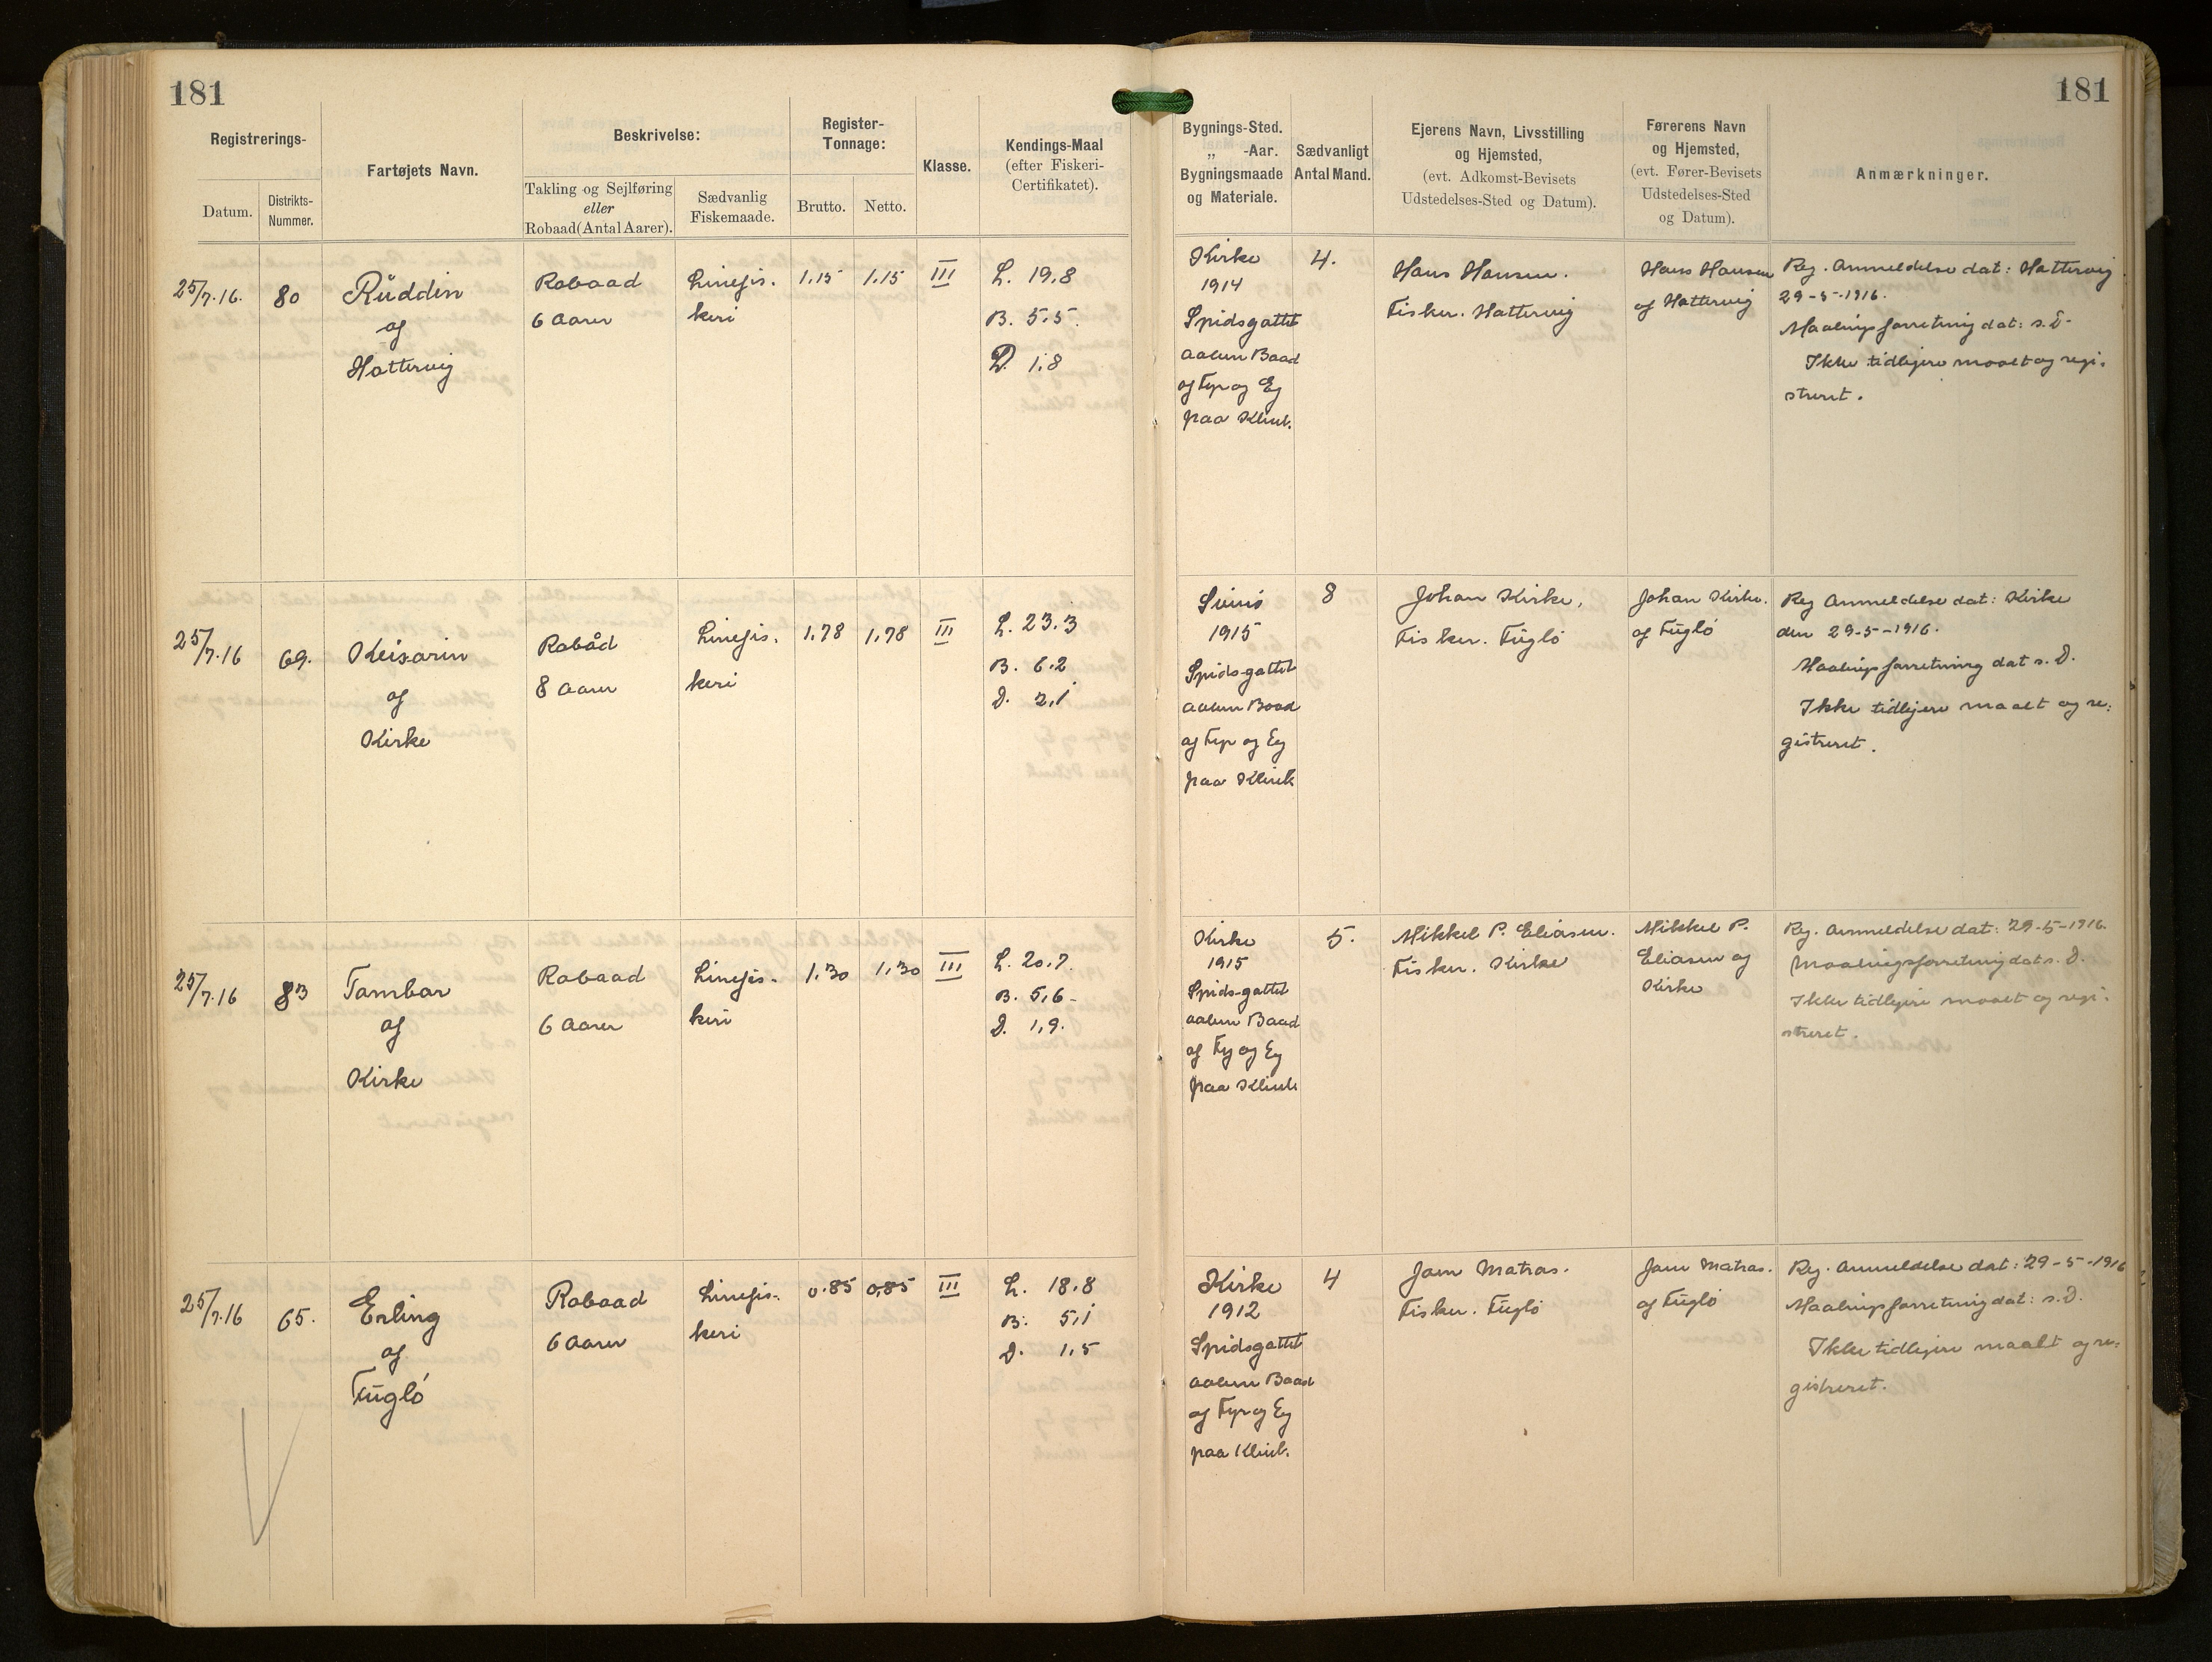 181
181
Registrerings-
Datum.
Distrikts-
Nummer.
Fartøjets Navn.
Beskrivelse:
Takling og Sejlføring
eller
Robaad (Antal Aarer).
Sædvanlig
Fiskemaade.
Register-
Tonnage:
Brutto.
Netto.
Klasse.
Kendings-Maal
(efter Fiskeri-
Certifikatet).
Bygnings-Sted.
„ -Aar.
Bygningsmaade
og Materiale.
Sædvanligt
Antal Mand.
Ejerens Navn, Livsstilling
og Hjemsted,
(evt. Adkomst-Bevisets
Udstedelses-Sted og Datum).
Førerens Navn
og Hjemsted,
(evt. Fører-Bevisets
Udstedelses-Sted
og Datum).
Anmærkninger.
25/7.16.
80
Rüddin
af
Hattervig
Robaad
6 Aarer
Linefis-
keri
1,15
1,15
III
L. 19,8
B. 5,5
D. 1,8
Kirke
1914
Spidsgattet
aaben Baad
af Fyr og Eg
paa Klink.
4.
Hans Hansen.
Fisker. Hattervig
Hans Hansen
af Hattervig
Reg. Anmeldelse dat: Hattervig
29-5-1916.
Maalingsforretning dat: s. D.
Ikke tidligere maalt og regi-
streret.
25/7.16
69.
Keisarin
af
Kirke
Robåd
8 Aarer
Linefis-
keri
1,78
1,78
III
L. 23,3
B. 6,2
D. 2,1
Svinö
1915
Spidsgattet
aaben Baad
af Fyr og Eg
paa Klink
8
Johan Kirke,
Fisker. Fügló
Johan Kirke.
af Fügló
Reg Anmeldelse dat: Kirke
den 29-5-1916.
Maalingsforretning dat s. D.
Ikke tidligere maalt og re-
gistreret.
25/7.16
83
Tambar
af
Kirke
Robaad
6 Aarer
Linefis-
keri
1,30
1,30
III
L. 20,7
B. 5,6-
D. 1,9.
Kirke
1915
Spids-gattet
aaben Baad
af Fyr og Eg
paa Klink
5.
Mikkel P. Eliasen.
Fisker. Kirke
Mikkel P.
Eliasen af
Kirke
Reg. Anmeldelse dat: 29-5-1916.
Maalingsforretning dat s. D.
Ikke tidligere maalt og regi-
streret.
25/7.16
65.
Erling
af
Fügló
Robaad
6 Aarer
Linefis-
keri
0.85
0,85
III
L. 18,8
B. 5,1
D. 1,5
Kirke
1912
Spidsgattet
aaben Baad
af Fyr og Eg
paa Klink.
4
Joen Matras.
Fisker. Fügló
Joen Matras.
af Fügló
Reg. Anmeldelse dat: 29-5-1916
Maalingsforretning dat: s. D.
Ikke tidligere maalt og re-
gistreret.